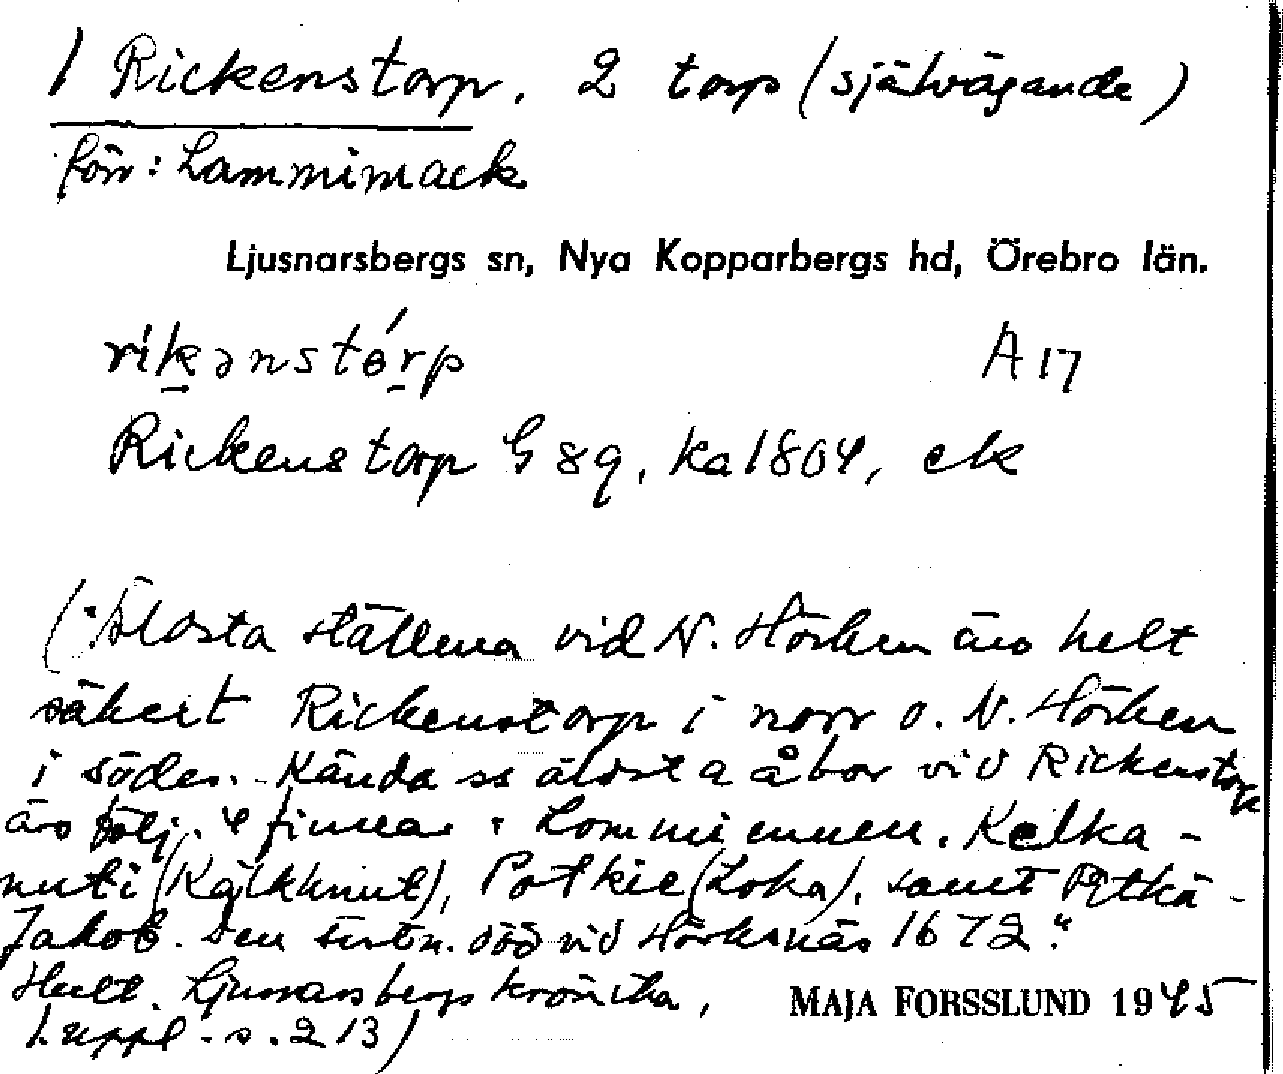 1 Rickenstorp. 2 torp (självägande)
förr: Lammimack
Ljusnarsbergs sn, Nya Kopparbergs hd, Örebro län.
rikənstórp A 17
Rickenstorp G 89, ka 1804, ek
("Äldsta ställena vid N. Hörken äro helt
säkert Rickenstorp i norr o. N. Hörken
i söder. Kända ss äldsta åbor vid Rickenstorp
äro följ. 4 finnar: Lommiennen. Kelka-
nuti (Kälkknut), Potkie (Loka), samt Pitkä-
Jakob. Den sistn. död vid Hörksnäs 1672."
Hult. Ljusnarsbergs krönika, MAJA FORSSLUND 1945
1. uppl. s. 213)